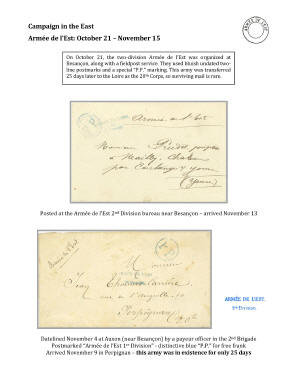 Campaign in the East
Armée de l'Est: October 21 – November 15
ARMÉE DE L'EST
On October 21, the two-division Armée de l'Est was organized at
Besançon, along with a fieldpost service. They used bluish undated two-
line postmarks and a special "P.P." marking. This army was transferred
25 days later to the Loire as the 20th Corps, so surviving mail is rare.
Armée de l'Est
Monsieur
à Mailly
par
(Yonne)
Posted at the Armée de l'Est 2nd Division bureau near Besançon – arrived November 13
Armée de l'Est
Monsieur
rue de l'
Perpignan
ARMÉE DE L'EST.
1re Division
Datelined November 4 at Auxon (near Besançon) by a payeur officer in the 2nd Brigade
Postmarked "Armée de l'Est 1st Division" - distinctive blue "P.P." for free frank
Arrived November 9 in Perpignan – this army was in existence for only 25 days